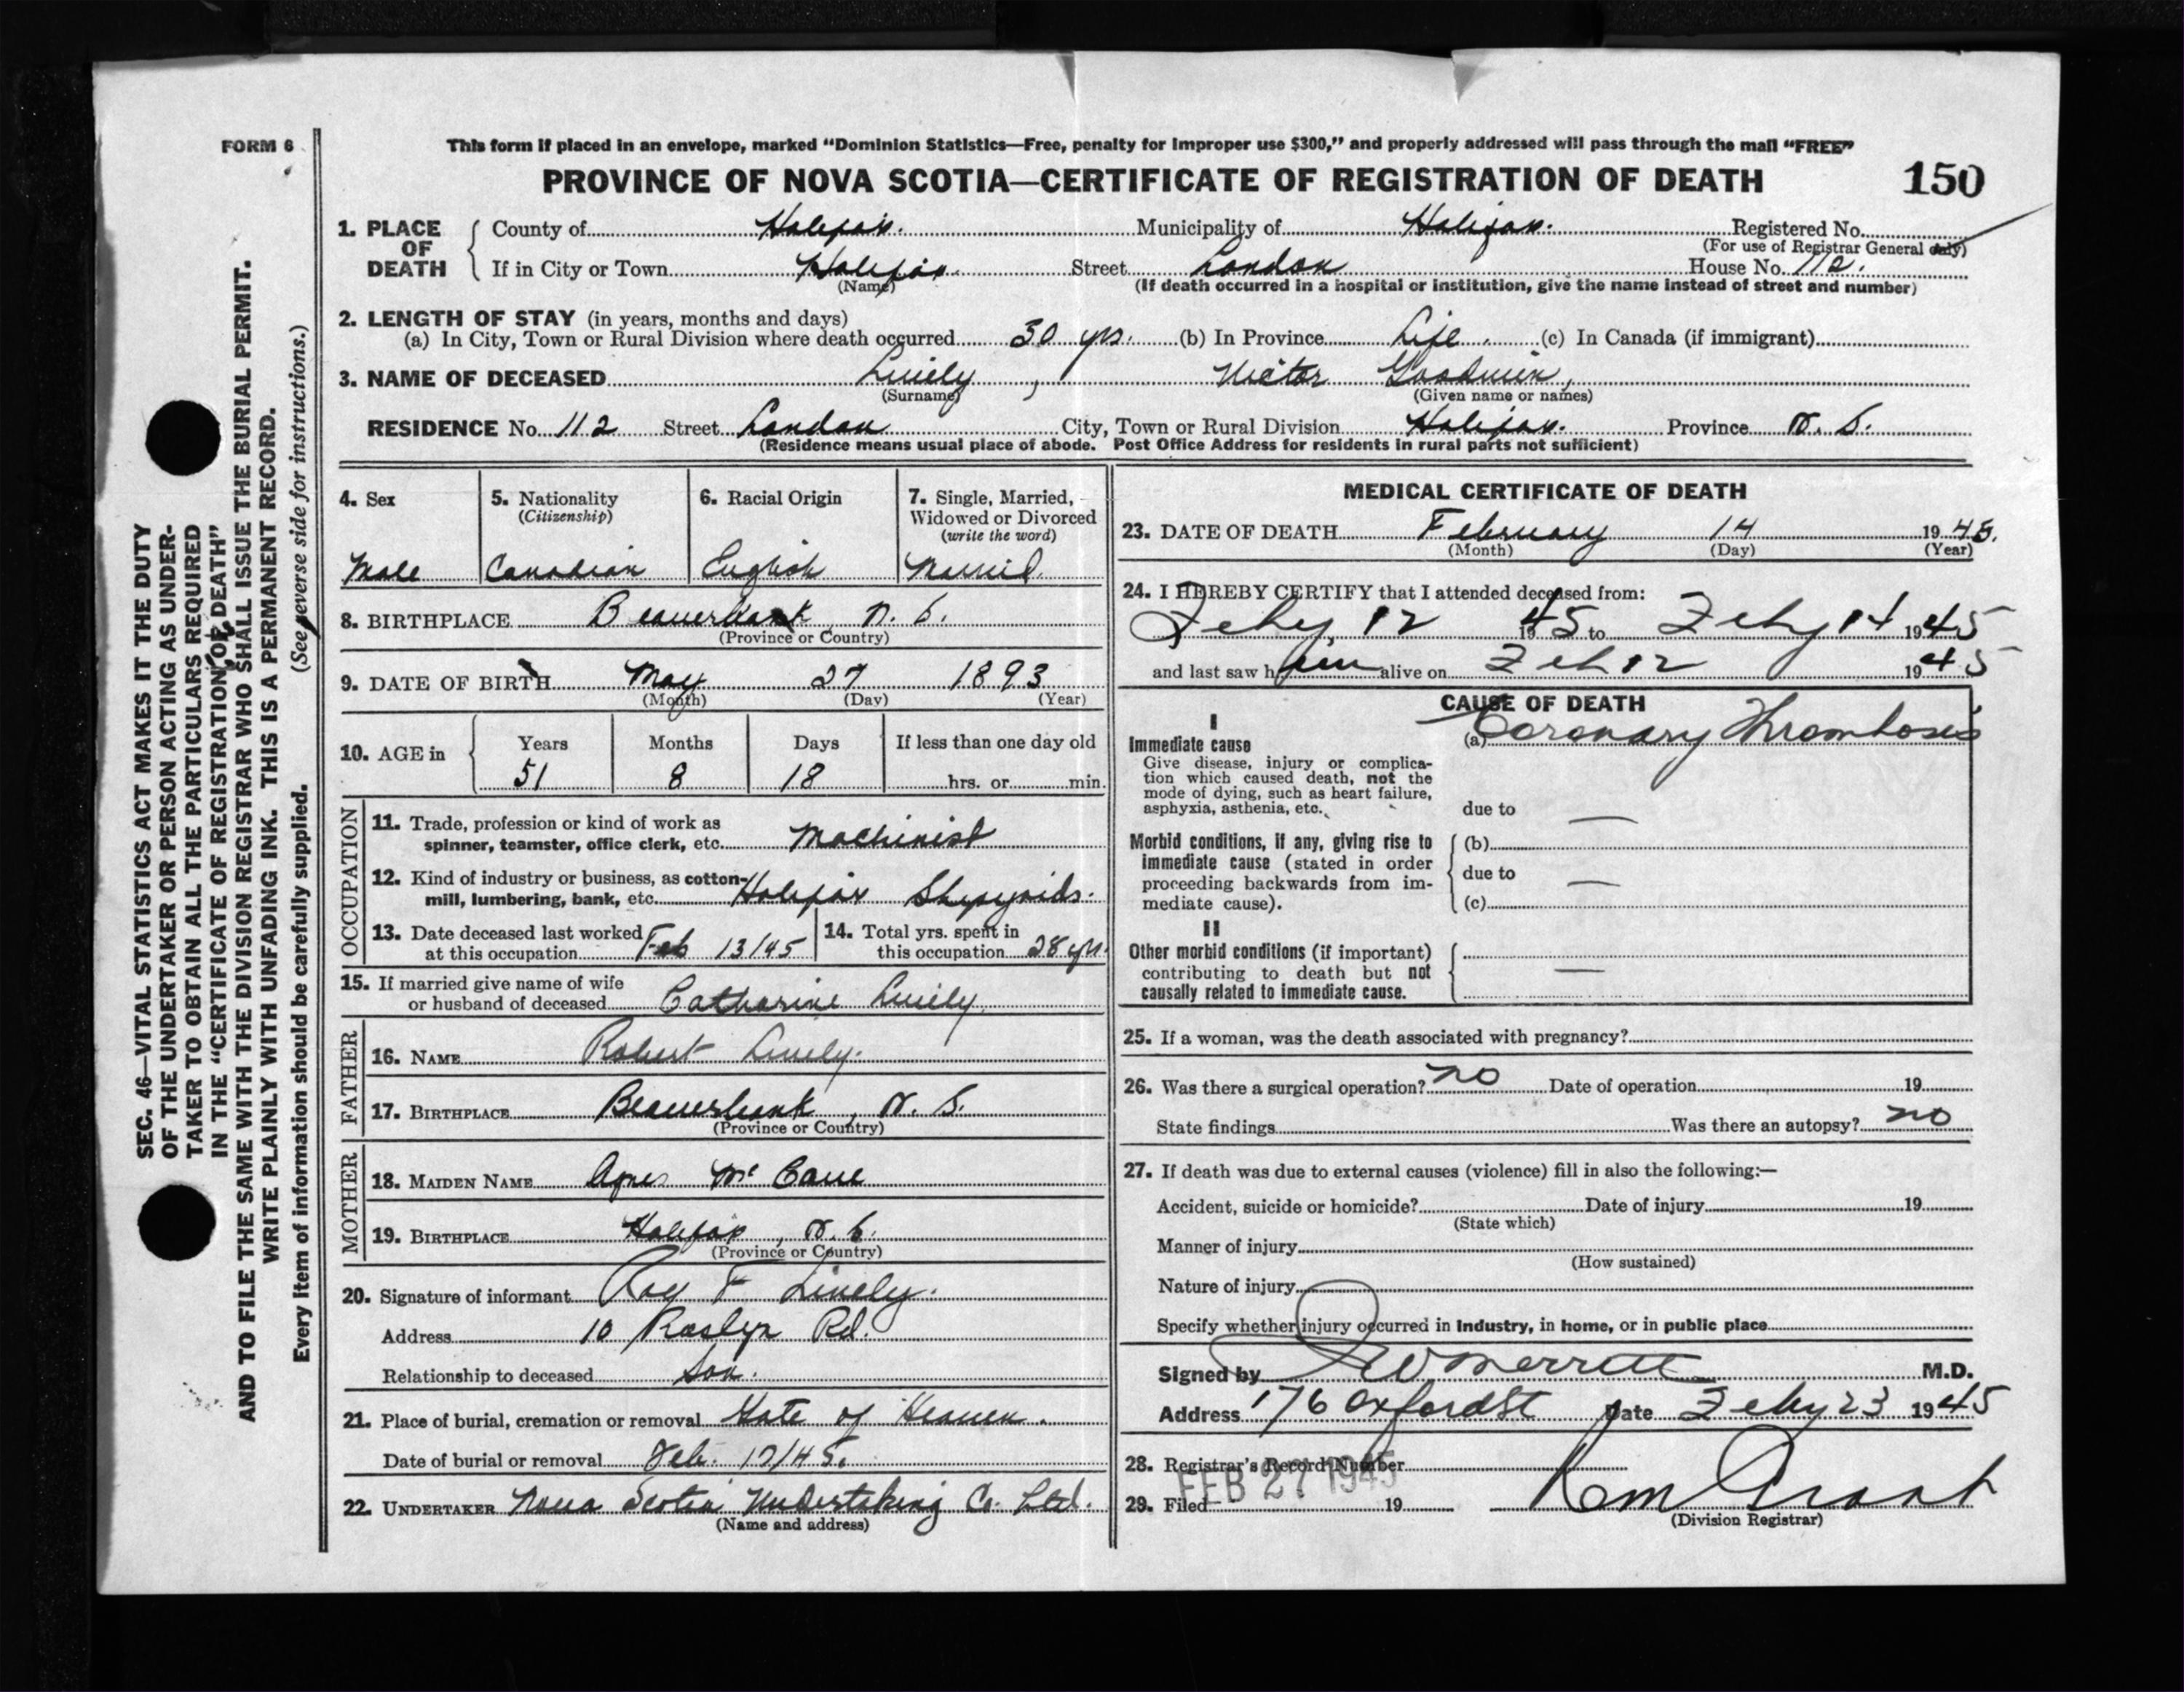 FORM 6
This form if placed in an envelope, marked “Dominion Statistics—Free, penalty for improper use $300,” and properly addressed will pass through the mail “FREE”
PROVINCE OF NOVA SCOTIA—CERTIFICATE OF REGISTRATION OF DEATH 150
1. PLACE OF DEATH County of Halifax. Municipality of Halifax. Registered No.
(For use of Registrar General only)
If in City or Town Halifax. Street London House No. 112.
(Name) (If death occurred in a hospital or institution, give the name instead of street and number)
2. LENGTH OF STAY (in years, months and days)
(a) In City, Town or Rural Division where death occurred 30 yrs. (b) In Province Life. (c) In Canada (if immigrant)
3. NAME OF DECEASED Lively, Victor Goodwin,
(Surname) (Given name or names)
RESIDENCE No. 112 Street London City, Town or Rural Division Halifax. Province N. S.
(Residence means usual place of abode. Post Office Address for residents in rural parts not sufficient)
4. Sex 5. Nationality 6. Racial Origin 7. Single, Married,
(Citizenship) Widowed or Divorced
(write the word)
Male Canadian English Married.
8. BIRTHPLACE Beaverbank, N. S.
(Province or Country)
9. DATE OF BIRTH May 27 1893
(Month) (Day) (Year)
10. AGE in Years Months Days If less than one day old
51 8 18 hrs. or min.
OCCUPATION
11. Trade, profession or kind of work as
spinner, teamster, office clerk, etc. Machinist
12. Kind of industry or business, as cotton-
mill, lumbering, bank, etc. Halifax Shipyards.
13. Date deceased last worked
at this occupation Feb 13/45
14. Total yrs. spent in
this occupation 28 yrs.
15. If married give name of wife
or husband of deceased Catharine Lively
FATHER
16. NAME Robert Lively.
17. BIRTHPLACE Beaverbank, N. S.
(Province or Country)
MOTHER
18. MAIDEN NAME Agnes
19. BIRTHPLACE Halifax, N. S.
(Province or Country)
20. Signature of informant Roy F Lively.
Address 10 Roslyn Rd.
Relationship to deceased Son.
21. Place of burial, cremation or removal Gate of Heaven.
Date of burial or removal Feb. 17/45.
22. UNDERTAKER Nova Scotia Undertaking Co. Ltd.
(Name and address)
MEDICAL CERTIFICATE OF DEATH
23. DATE OF DEATH February 14 1945.
(Month) (Day) (Year)
24. I HEREBY CERTIFY that I attended deceased from:
Feby 12 1945 to Feby 14 1945
and last saw him alive on Feb 12 1945
CAUSE OF DEATH
I
Immediate cause (a) Coronary Thrombosis
Give disease, injury or complica-
tion which caused death, not the
mode of dying, such as heart failure,
asphyxia, asthenia, etc. due to —
Morbid conditions, if any, giving rise to (b)
immediate cause (stated in order
proceeding backwards from im- due to —
mediate cause). (c)
II
Other morbid conditions (if important)
contributing to death but not —
causally related to immediate cause.
25. If a woman, was the death associated with pregnancy?
26. Was there a surgical operation? no Date of operation 19
State findings Was there an autopsy? no
27. If death was due to external causes (violence) fill in also the following:—
Accident, suicide or homicide? Date of injury 19
(State which)
Manner of injury
(How sustained)
Nature of injury
Specify whether injury occurred in industry, in home, or in public place
Signed by Merritt M.D.
Address 176 Oxford St Date Feby 23 1945
28. Registrar's Record Number
FEB 27 1945
29. Filed 19
(Division Registrar)
SEC. 46—VITAL STATISTICS ACT MAKES IT THE DUTY
OF THE UNDERTAKER OR PERSON ACTING AS UNDER-
TAKER TO OBTAIN ALL THE PARTICULARS REQUIRED
IN THE “CERTIFICATE OF REGISTRATION OF DEATH”
AND TO FILE THE SAME WITH THE DIVISION REGISTRAR WHO SHALL ISSUE THE BURIAL PERMIT.
WRITE PLAINLY WITH UNFADING INK. THIS IS A PERMANENT RECORD.
Every item of information should be carefully supplied. (See reverse side for instructions.)